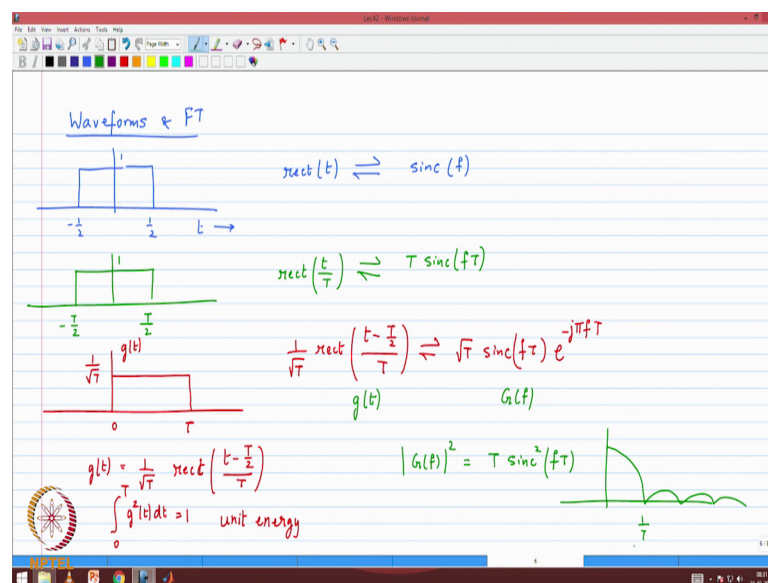 Lec42 - Windows Journal
File Edit View Insert Actions Tools Help
Page Width
B I
Waveforms & FT
1
-1/2 1/2 t →
rect(t) ⇌ sinc(f)
1
-T/2 T/2
rect(t/T) ⇌ T sinc(fT)
1/√T g(t)
0 T
1/√T rect((t - T/2)/T) ⇌ √T sinc(fT) e^{-jπfT}
g(t) G(f)
g(t) = 1/√T rect((t - T/2)/T)
∫_0^T g²(t) dt = 1 unit energy
|G(f)|² = T sinc²(fT)
1/T
NPTEL
6